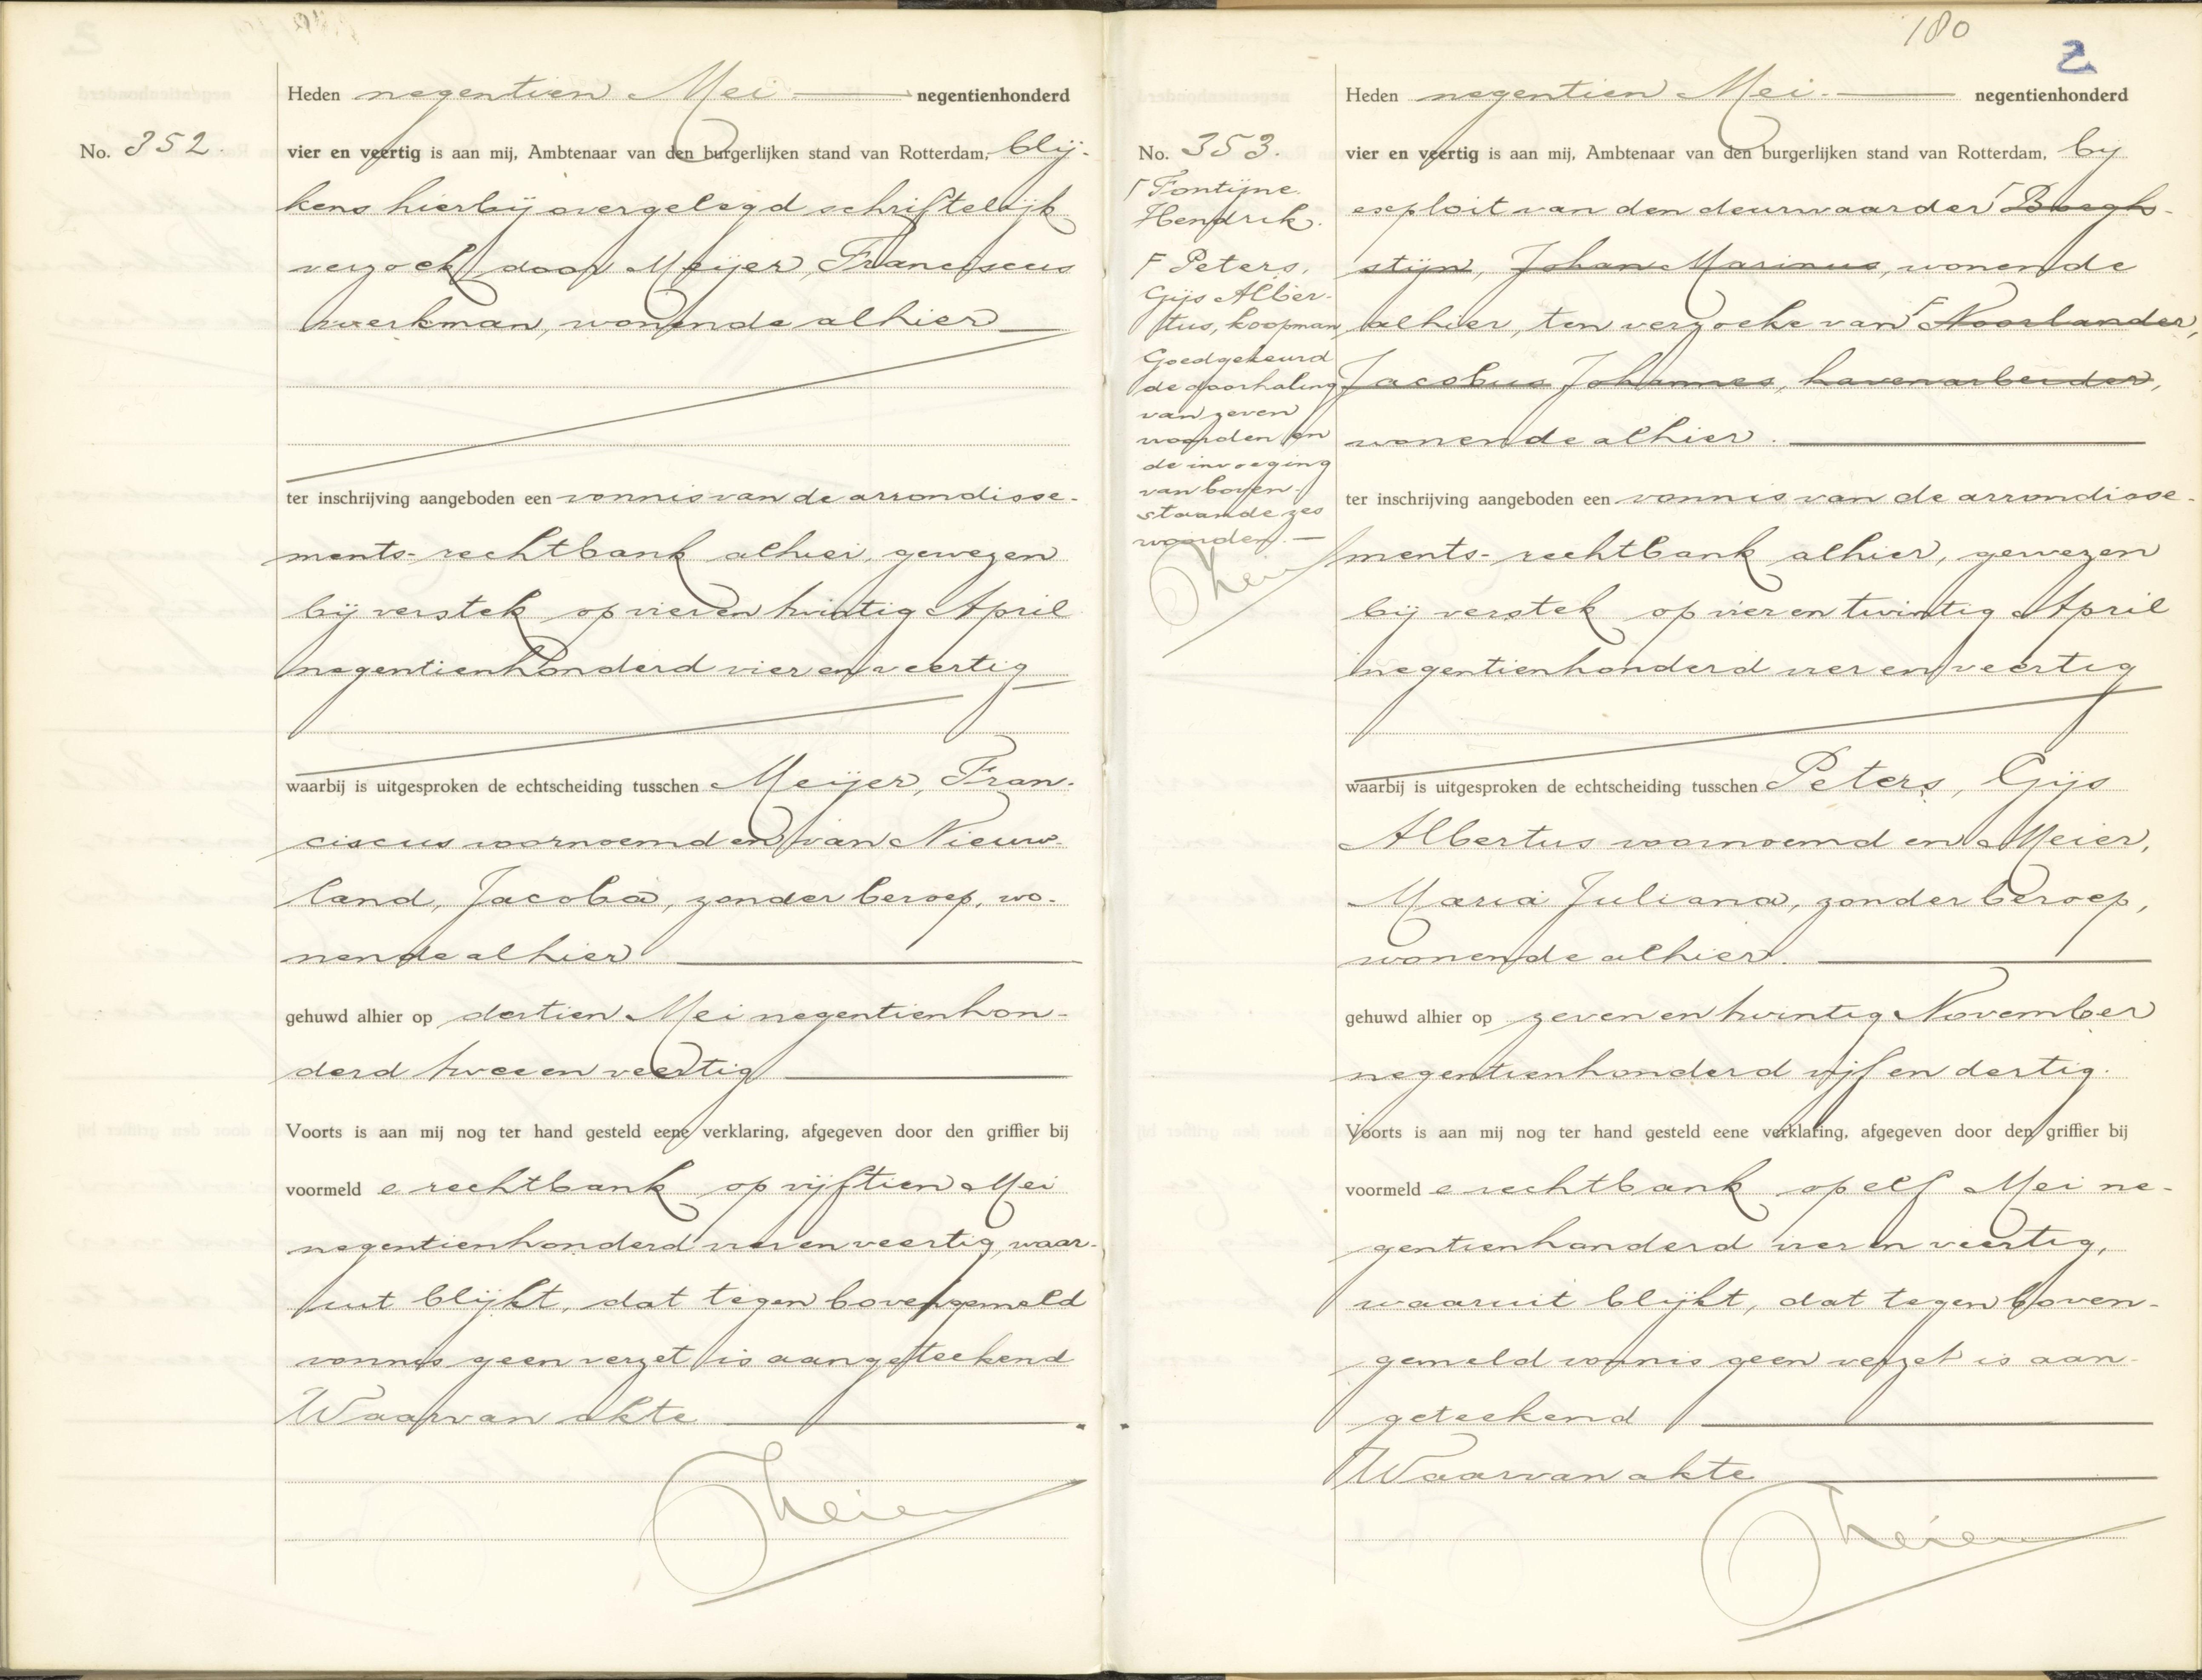 Heden negentien Mei negentienhonderd
No. 352.
vier en veertig is aan mij, Ambtenaar van den burgerlijken stand van Rotterdam, blij-
kens hierbij overgelegd schriftelijk
verzoek door Meijer, Franciscus
werkman, wonende alhier
ter inschrijving aangeboden een vonnis van de arrondisse-
ments-rechtbank alhier, gewezen
bij verstek op vier en twintig April
negentienhonderd vier en veertig
waarbij is uitgesproken de echtscheiding tusschen Meijer, Fran-
ciscus voornoemd en van Nieuw-
land, Jacoba, zonder beroep, wo-
nende alhier
gehuwd alhier op dertien Mei negentienhon-
derd twee en veertig
Voorts is aan mij nog ter hand gesteld eene verklaring, afgegeven door den griffier bij
voormeld e rechtbank op vijftien Mei
negentienhonderd vier en veertig, waar-
uit blijkt, dat tegen bovengemeld
vonnis geen verzet is aangeteekend
Waarvan akte
180
2
Heden negentien Mei. negentienhonderd
No. 353.
vier en veertig is aan mij, Ambtenaar van den burgerlijken stand van Rotterdam, bij
exploit van den deurwaarder Boogh-
stijn, Johan Marinus, wonende
alhier, ten verzoeke van Noorlander,
Jacobus Johannes, havenarbeider,
wonende alhier.
Γ Fontijne
Hendrik.
F Peters,
Gijs Alber-
tus, koopman
Goedgekeurd
de doorhaling
van zeven
woorden en
de invoeging
van boven-
staande zes
woorden.
ter inschrijving aangeboden een vonnis van de arrondisse-
ments-rechtbank alhier, gewezen
bij verstek op vier en twintig April
negentienhonderd vier en veertig
waarbij is uitgesproken de echtscheiding tusschen Peters, Gijs
Albertus voornoemd en Meier,
Maria Juliana, zonder beroep,
wonende alhier.
gehuwd alhier op zeven en twintig November
negentienhonderd vijf en dertig.
Voorts is aan mij nog ter hand gesteld eene verklaring, afgegeven door den griffier bij
voormeld e rechtbank op elf Mei ne-
gentienhonderd vier en veertig,
waaruit blijkt, dat tegen boven-
gemeld vonnis geen verzet is aan-
geteekend
Waarvan akte